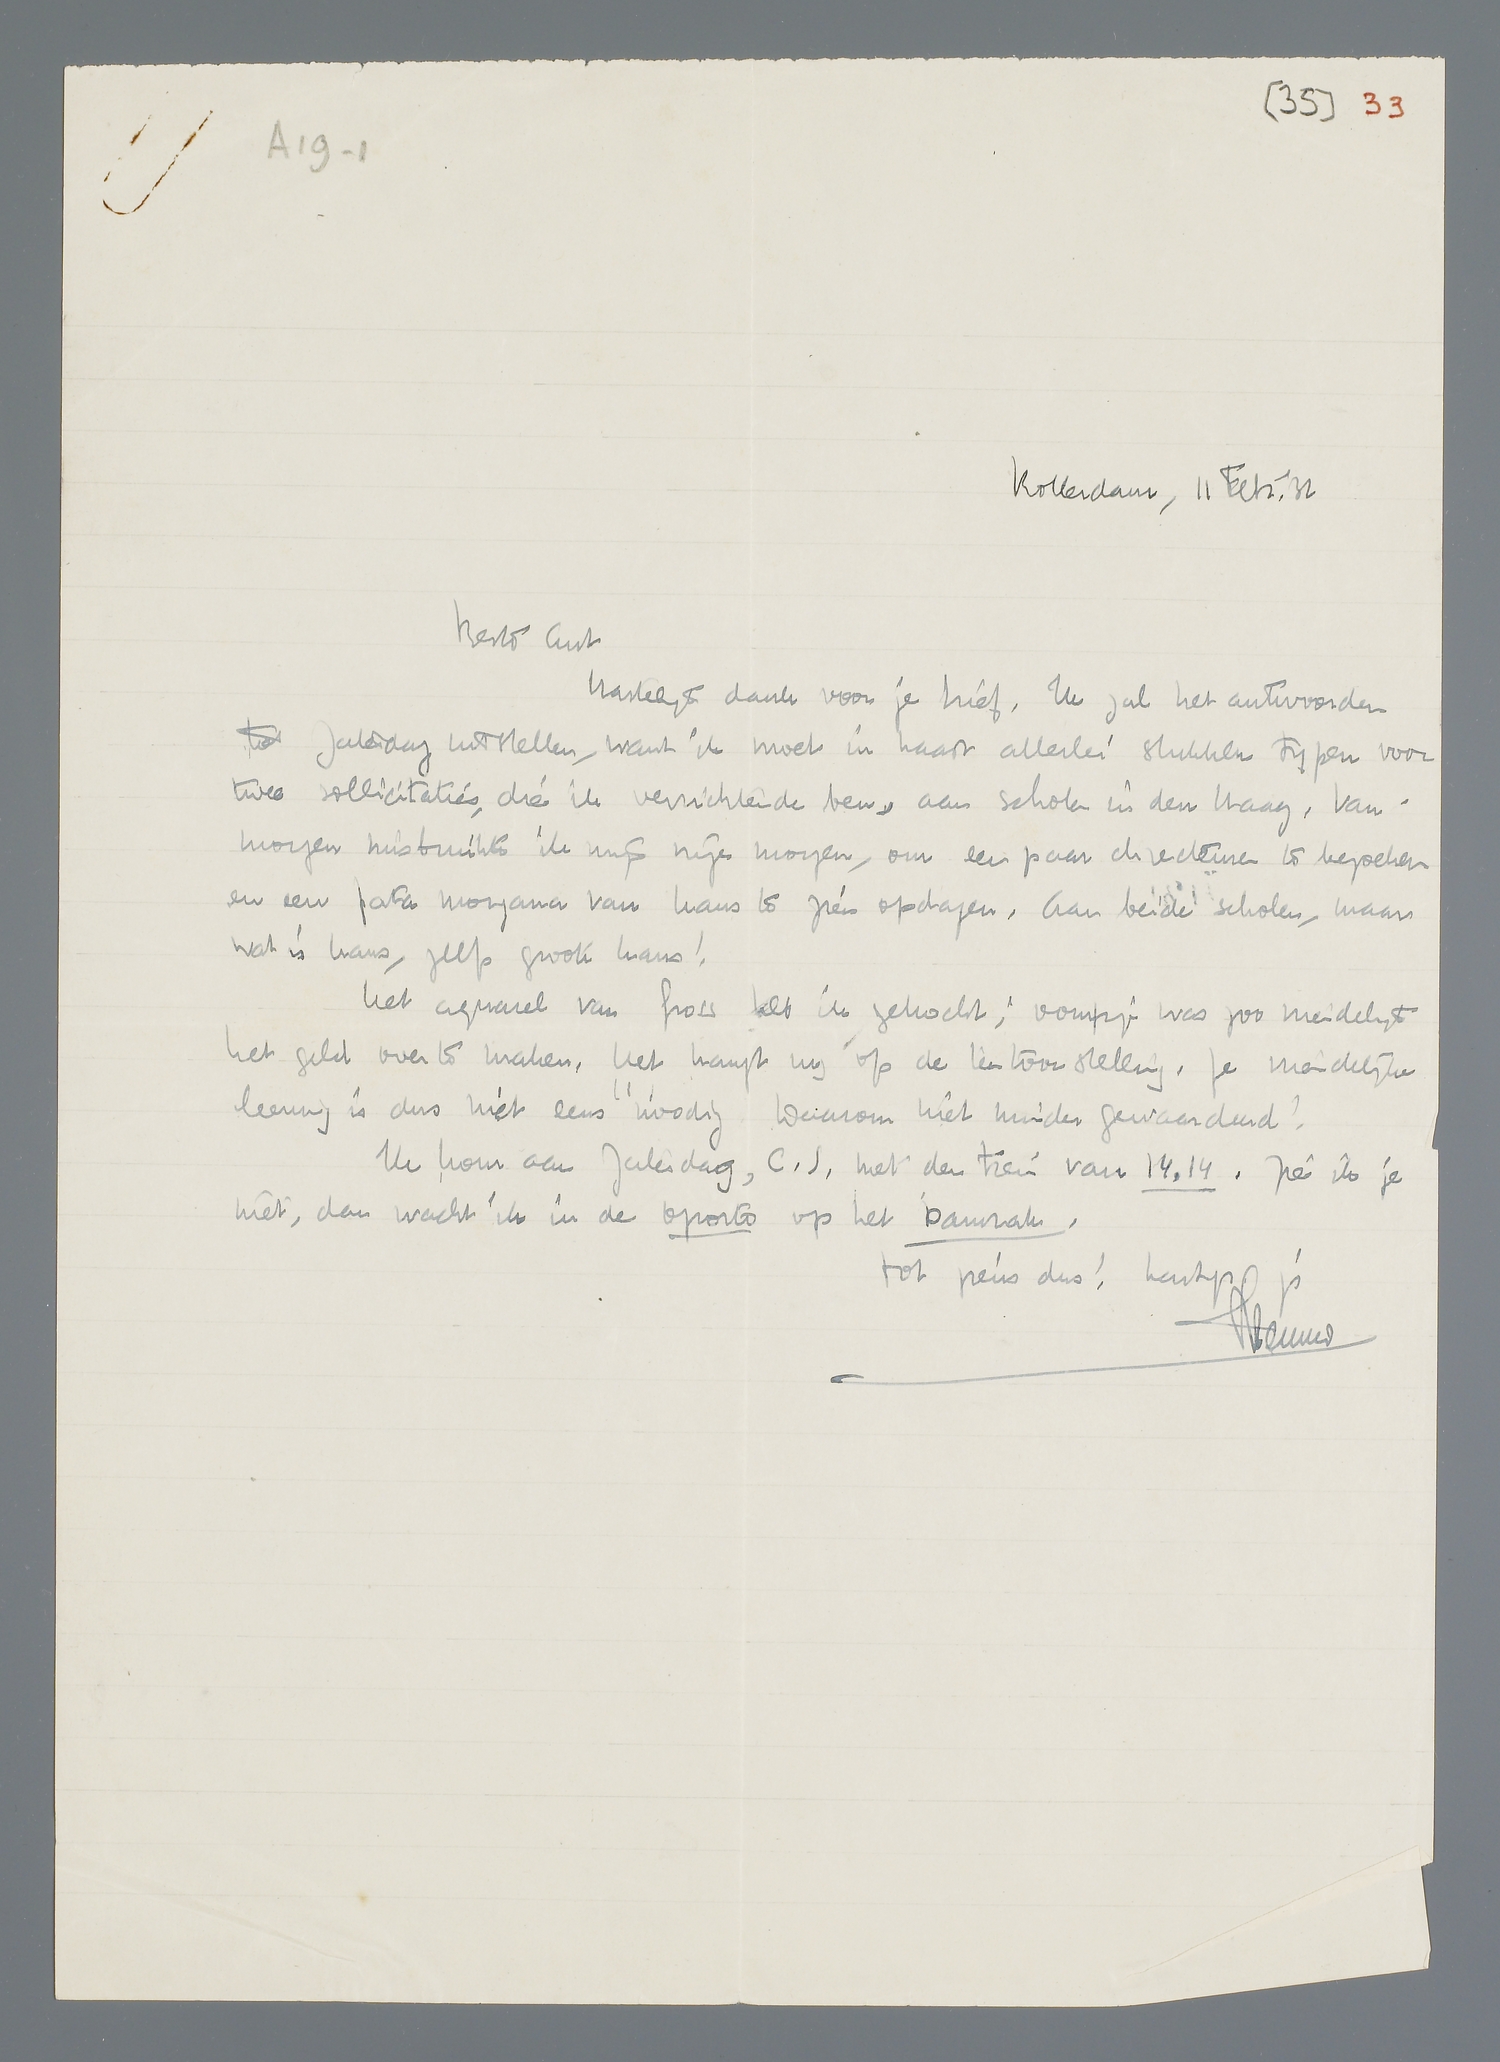 [35] 33
A19-1
Rotterdam, 11 Febr. '31
Beste Ant
Hartelijk dank voor je brief. Ik zal het antwoorden
tot Zaterdag uitstellen, want ik moet in haast allerlei stukken typen voor
twee sollicitaties, die ik verrichtende ben, aan scholen in den Haag. Van-
morgen misbruikte ik mijn vrije morgen, om een paar directeuren te bezoeken
en een fata morgana van kans te zien opdagen. Aan beide scholen, maar
wat is kans, zelfs groote kans!
Het aquarel van Gross heb ik gekocht; oompje was zoo vriendelijk
het geld over te maken. Het hangt nog op de tentoonstelling. Je vriendelijke
leening is dus niet eens noodig. Daarom niet minder gewaardeerd!
Ik kom aan Zaterdag, C.S. met den trein van 14.14. Zie ik je
niet, dan wacht ik in de oporto op het Damrak.
Tot ziens dus! hartelijk je
Menno